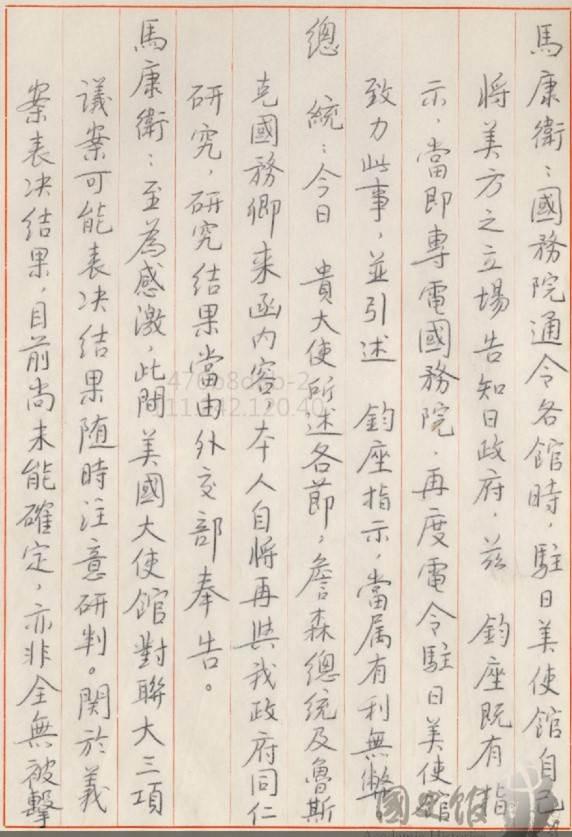 馬康衛：國務院通令各館時，駐日美使館自已
將美方之立場告知日政府，茲　鈞座既有指
示，當即專電國務院，再度電令駐日美使館
致力此事，並引述　鈞座指示，當属有利無弊
總　統：今日　貴大使所述各節，詹森總統及魯斯
克國務卿來函內容，本人自將再與我政府同仁
研究，研究結果當由外交部奉告。
馬康衛：至為感激，此間美國大使館對聯大三項
議案可能表决結果随時注意研判。関於義
案表决結果，目前尚未能確定，亦非全無被擊
國史館